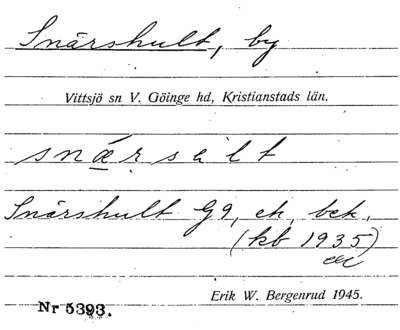 Snärshult, by
Vittsjö sn V. Göinge hd, Kristianstads län.
snǽrsált
Snärshult G9, ek, bek.
(kb 1935)
Erik W. Bergenrud 1945.
Nr 5393.